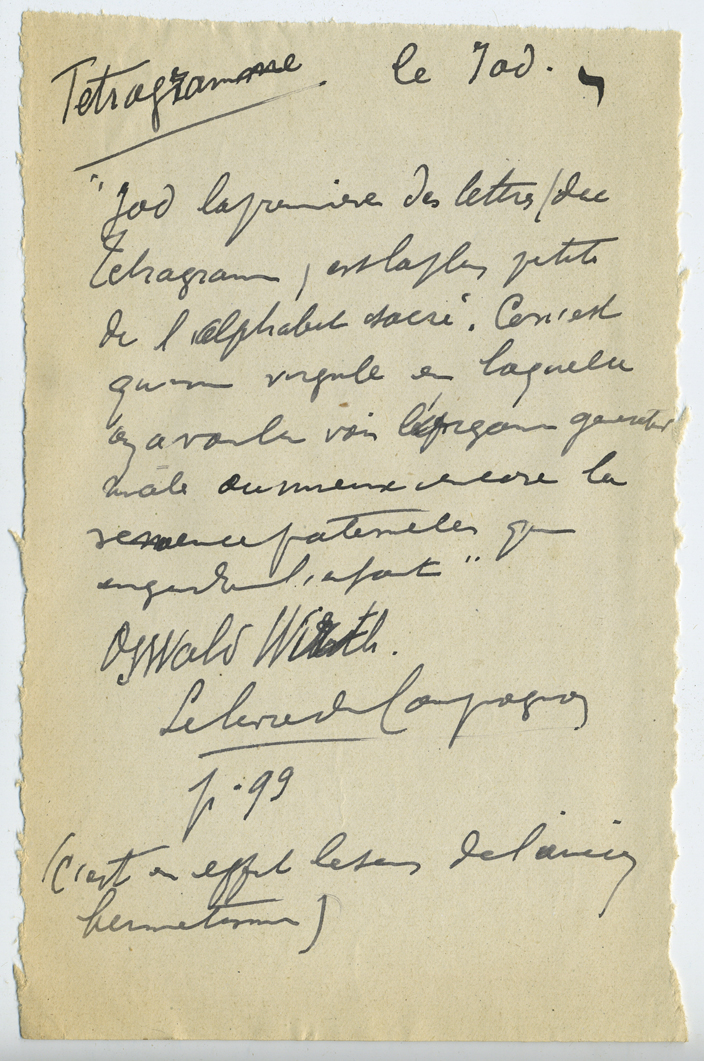 Tetragramme. le Jod. י
"Jod la première des lettres du
Tetragramme, est la plus petite
de l'alphabet sacré. Ce n'est
qu'une virgule en laquelle
on a voulu voir l'organe generateur
mâle ou mieux encore la
semence paternelle qui
engendre l'enfant"
Oswald Wirth.
Le livre du Compagnon
p. 99
(C'est en effet le sens de l'ancien
hermetisme)